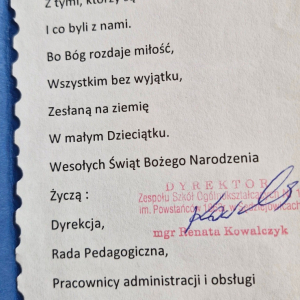 Z tymi, którzy są
I co byli z nami.
Bo Bóg rozdaje miłość,
Wszystkim bez wyjątku,
Zesłaną na ziemię
W małym Dzieciątku.
Wesołych Świąt Bożego Narodzenia
Życzą :
DYREKTOR
Zespołu Szkół Ogólnokształcących Nr 1
im. Powstańców
mgr Renata Kowalczyk
Dyrekcja,
Rada Pedagogiczna,
Pracownicy administracji i obsługi